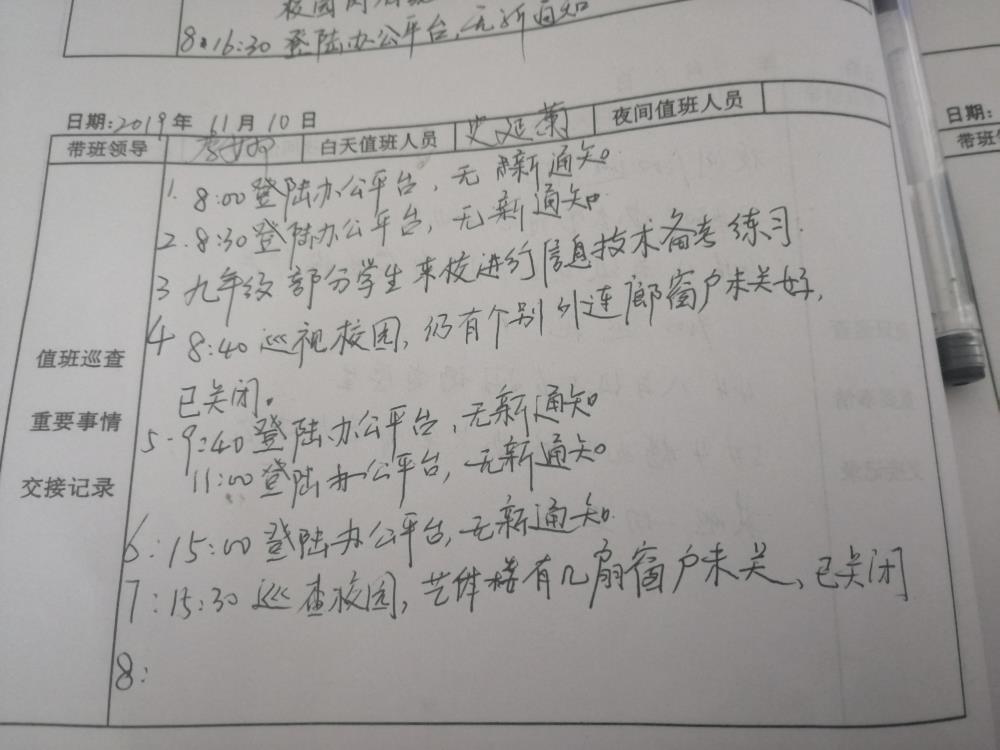 8.16:30 登陆办公平台,无新通知
日期:2019年 11月10日
带班领导 白天值班人员 史延菊 夜间值班人员
1. 8:00登陆办公平台,无新通知。
2. 8:30登陆办公平台,无新通知
3 九年级部分学生来校进行信息技术备考练习.
4 8:40巡视校园,仍有个别外连廊窗户未关好,
已关闭。
5. 9:40登陆办公平台,无新通知
11:00登陆办公平台,无新通知。
6:15:00登陆办公平台,无新通知.
7:15:30巡查校园,艺体楼有几扇窗户未关、已关闭
8:
值班巡查
重要事情
交接记录
日期:
带班